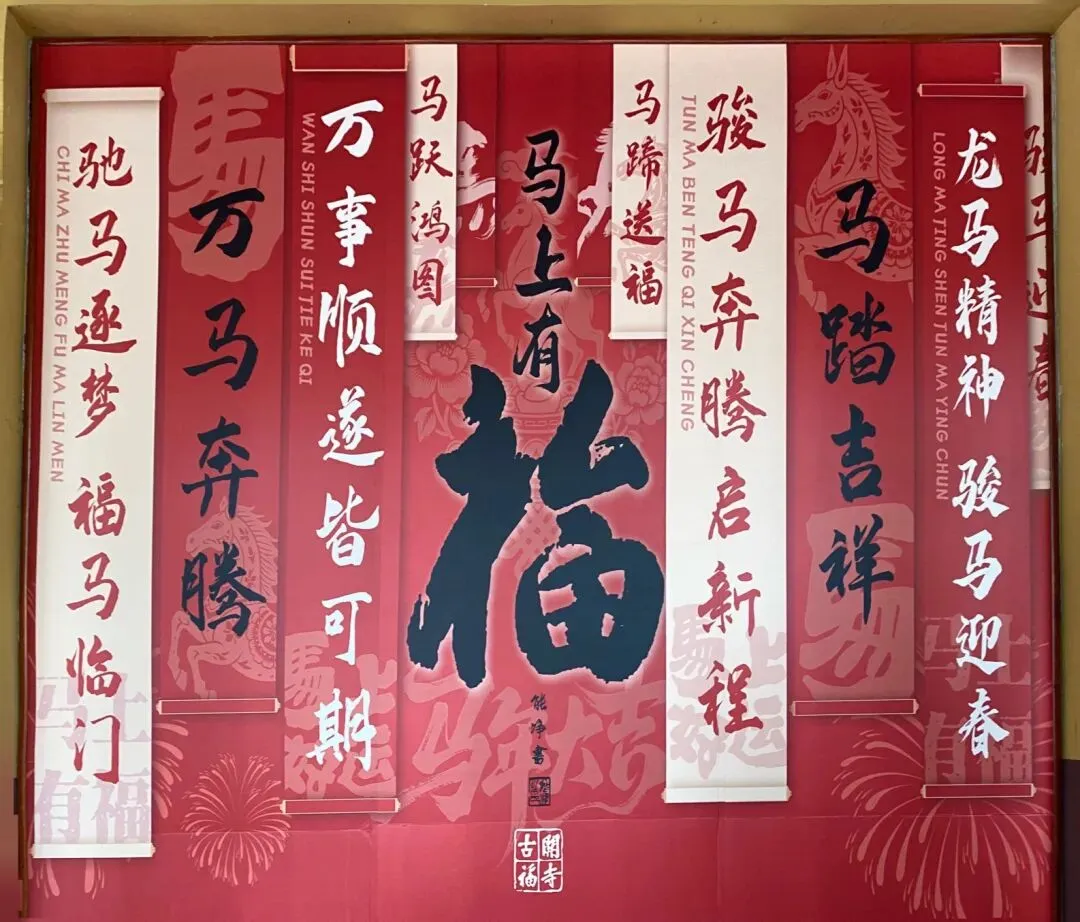 驰马逐梦 福马临门
CHI MA ZHU MENG FU MA LIN MEN
馬
万马奔腾
万事顺遂皆可期
WAN SHI SHUN SUI JIE KE QI
马跃鸿图
马上有
福
能净書
马蹄送福
骏马奔腾启新程
JUN MA BEN TENG QI XIN CHENG
马踏吉祥
龙马精神 骏马迎春
LONG MA JING SHEN JUN MA YING CHUN
马上有福
马年大吉
马上有福
開福古寺